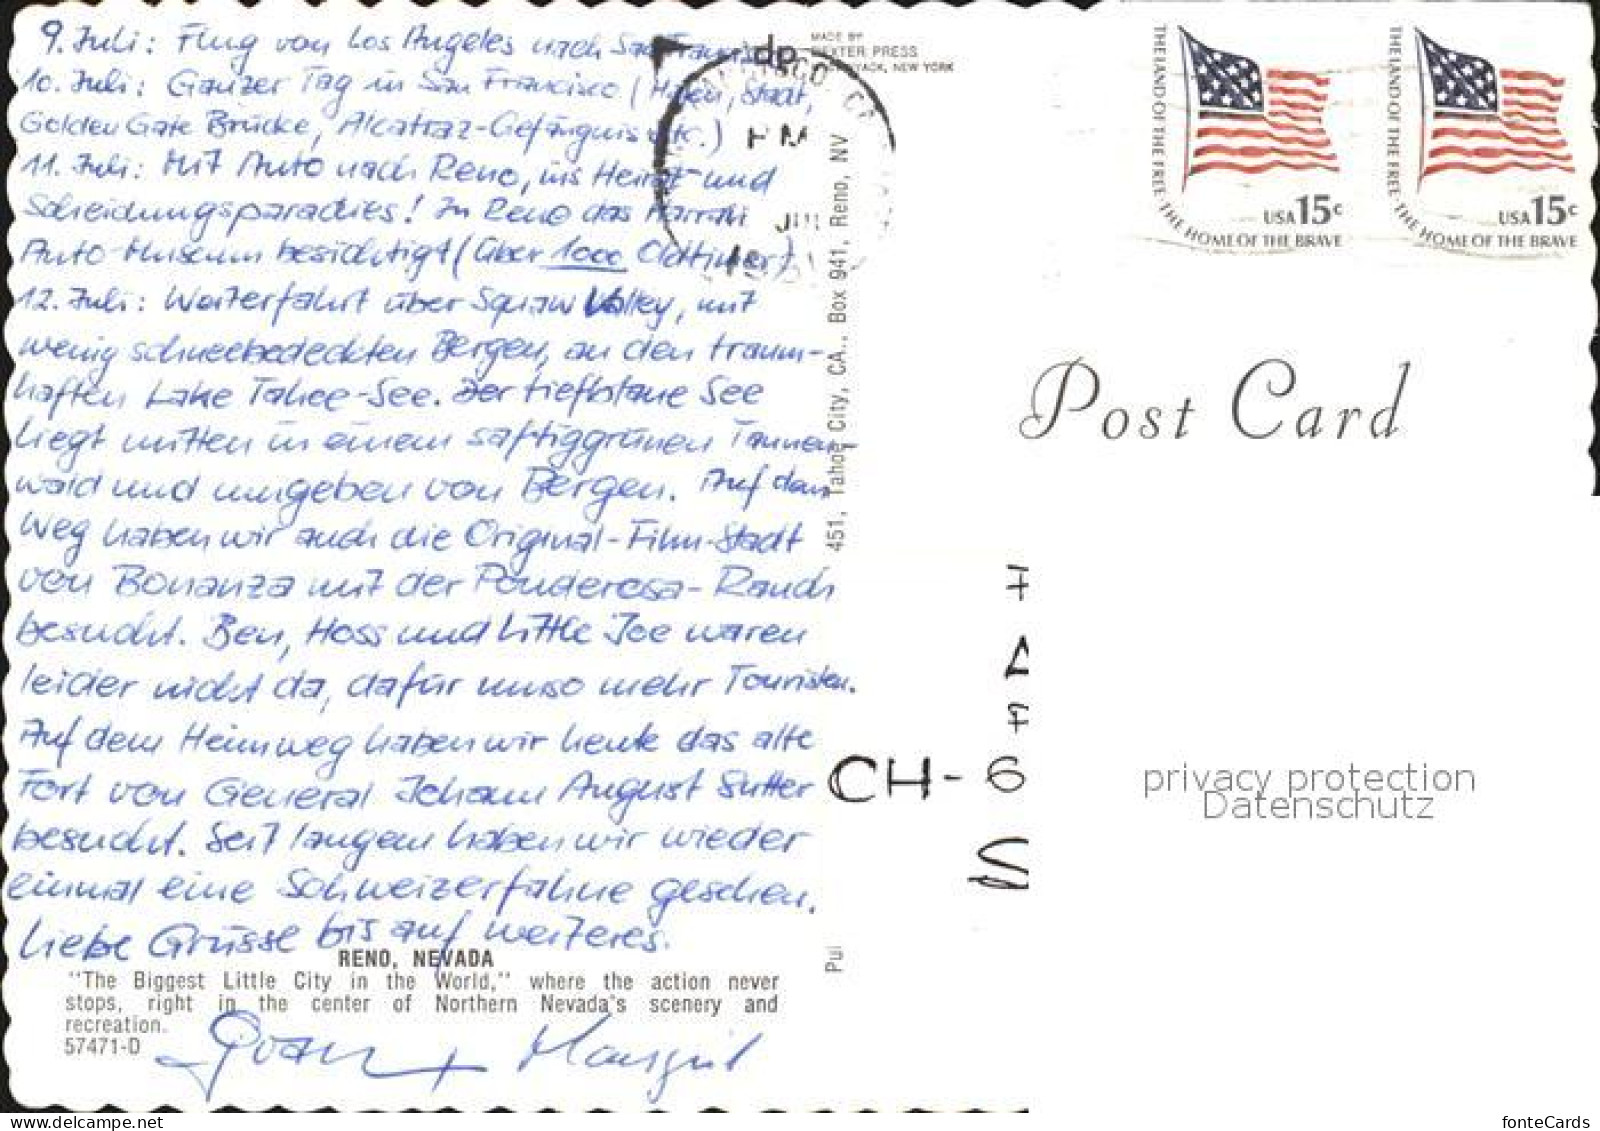 9. Juli: Flug von Los Angeles nach San
10. Juli: Ganzer Tag in San Francisco (Hafen, Stadt,
Golden Gate Brücke, Alcatraz-Gefängnis etc.)
11. Juli: Mit Auto nach Reno, ins Heirat- und
Scheidungsparadies! In Reno das Harrah
Auto-Museum besichtigt (über 1000 Oldtimer)
12. Juli: Weiterfahrt über Squaw Valley, mit
wenig schneebedeckten Bergen, an den traum-
haften Lake Tahoe-See. Der tiefblaue See
liegt mitten in einem saftiggrünen Tannen-
wald und umgeben von Bergen. Auf dem
Weg haben wir auch die Original-Film-Stadt
von Bonanza mit der Ponderosa-Ranch
besucht. Ben, Hoss und Little Joe waren
leider nicht da, dafür umso mehr Touristen.
Auf dem Heimweg haben wir heute das alte
Fort von General Johann August Sutter
besucht. Seit langem haben wir wieder
einmal eine Schweizerfahne gesehen.
Liebe Grüsse bis auf weiteres.
RENO, NEVADA
"The Biggest Little City in the World," where the action never
stops, right in the center of Northern Nevada's scenery and
recreation.
57471-D
MADE BY
DEXTER PRESS
NYACK, NEW YORK
dp
CA
PM
451, Tahoe City, CA., Box 941, Reno, NV
Pul
THE LAND OF THE FREE THE HOME OF THE BRAVE
USA 15c
THE LAND OF THE FREE THE HOME OF THE BRAVE
USA 15c
Post Card
CH-6
privacy protection
Datenschutz
www.delcampe.net
fonteCards